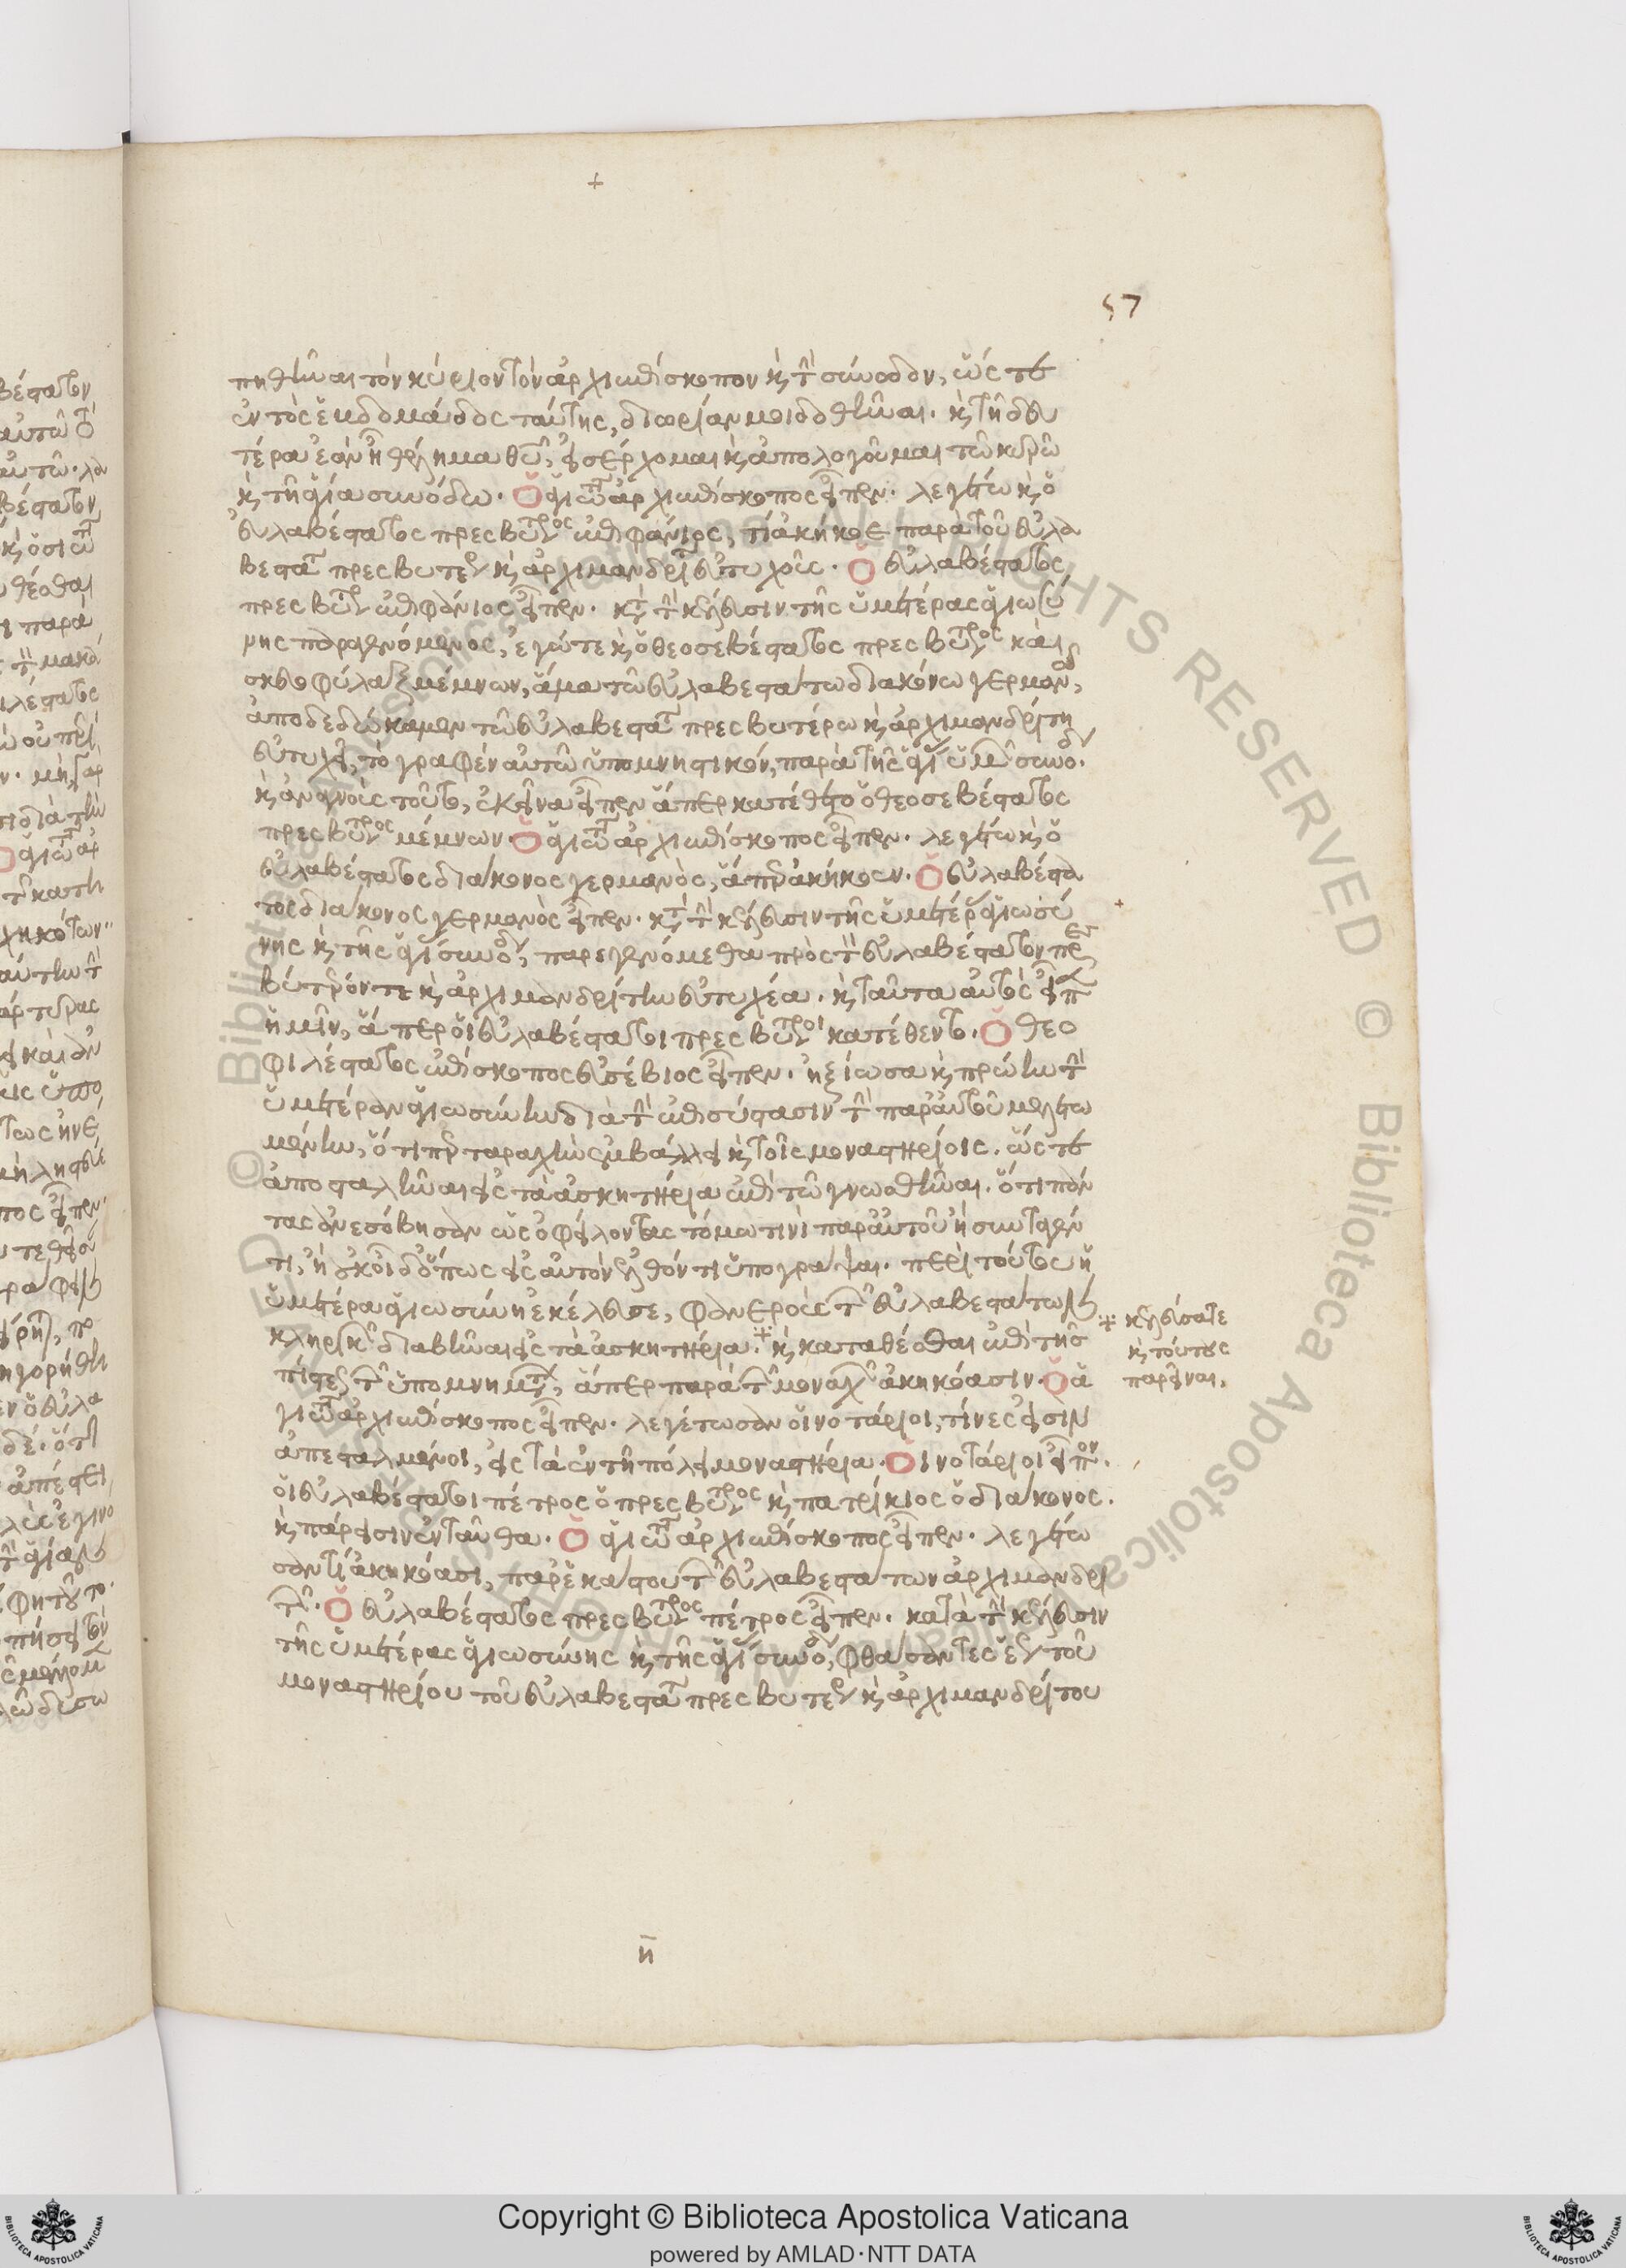 57
πηθῆναι τὸν κύριον τὸν ἀρχιεπίσκοπον κ τὴν σύνοδον, ὥστε
ἐντὸς ἑβδομάδος ταύτης, διωρίαν μοι δοθῆναι. κ τῆ δευ
τέρα ἐὰν ἦ θέλημα θῦ, εἰσέρχομαι κ ἀπολογοῦμαι τῶ κυρίω
κ τῆ ἁγία συνόδω. Ὁ ἁγιωτ ἀρχιεπίσκοπος εἶπεν. λεγέτω κ ὁ
εὐλαβέστατος πρεσβύτερος ἐπιφάνιος, τί ἀκήκοε παρὰ τοῦ εὐλα
βεστατ πρεσβυτέρου κ ἀρχιμανδρί εὐτυχοῦς. Ὁ εὐλαβέστατος
πρεσβύτερος ἐπιφάνιος εἶπεν. κατὰ τὴν κέλευσιν τῆς ὑμετέρας ἁγιωσύ
νης παραγενόμενος, ἐγώ τε κ ὁ θεοσεβέστατος πρεσβύτερος καὶ
σκευοφύλαξ μέμνων, ἅμα τῶ εὐλαβεστάτω διακόνω γερμανῶ,
ἀποδεδώκαμεν τῶ εὐλαβεστάτ πρεσβυτέρω κ ἀρχιμανδρίτη
εὐτυχεῖ, τὸ γραφὲν αὐτῶ ὑπομνηστικόν, παρὰ τῆς ἁγί ὑμῶν συνόδου.
κ ἀναγνοὺς τοῦτο, ἐκεῖνα εἶπεν ἅπερ κατέθετο ὁ θεοσεβέστατος
πρεσβύτερος μέμνων. Ὁ ἁγιωτ ἀρχιεπίσκοπος εἶπεν. λεγέτω κ ὁ
εὐλαβέστατος διάκονος γερμανὸς, ἅπερ ἀκήκοεν. Ὁ εὐλαβέστα
τος διάκονος γερμανὸς εἶπεν. κατὰ τὴν κέλευσιν τῆς ὑμετέρ ἁγιωσύ
νης κ τῆς ἁγί συνόδου, παρεγενόμεθα πρὸς τὸν εὐλαβέστατον πρεσ
βύτερόν τε κ ἀρχιμανδρίτην εὐτυχέα. κ ταῦτα αὐτὸς εἶπ
ἡμῖν, ἅπερ οἱ εὐλαβέστατοι πρεσβύτεροι κατέθεντο. Ὁ θεο
φιλέστατος ἐπίσκοπος εὐσέβιος εἶπεν. ἠξίωσα κ πρώην τὴν
ὑμετέραν ἁγιωσύνην διὰ τὴν ἐπισύστασιν τὴν παρ' αὐτοῦ μελετω
μένην, ὅτιπερ ταραχὴν ἐμβάλλει κ τοῖς μοναστηρίοις. ὥστε
ἀποσταλῆναι εἰς τὰ ἀσκητήρια ἐπὶ τῶ γνωσθῆναι. ὅτι πάν
τας ἀνεσόβησαν ὡς ὀφείλοντας τόμω τινὶ παρ' αὐτοῦ ἢ συνταγέν
τι, ἢ οὐκ οἶδ' ὅπως εἰς αὐτὸν ἐλθόντι ὑπογράψαι. περὶ τούτου ἡ
ὑμετέρα ἁγιωσύνη ἐκέλευσε, φανεροὺς τῶν εὐλαβεστάτων
κληρικῶν διαβῆναι εἰς τὰ ἀσκητήρια. ※ κ καταθέσθαι ἐπὶ τῆς
πίστεως τῶν ὑπομνημάτων, ἅπερ παρὰ τῶν μοναχῶν ἀκηκόασιν. Ὁ ἁ
γιωτ ἀρχιεπίσκοπος εἶπεν. λεγέτωσαν οἱ νοτάριοι, τίνες εἰσιν
ἀπεσταλμένοι, εἰς τὰ ἐν τῆ πόλει μοναστήρια. Οἱ νοτάριοι εἶπον.
οἱ εὐλαβέστατοι πέτρος ὁ πρεσβύτερος κ πατρίκιος ὁ διάκονος.
κ πάρεισιν ἐνταῦθα. Ὁ ἁγιωτ ἀρχιεπίσκοπος εἶπεν. λεγέτω
σαν τί ἀκηκόασι, παρ' ἑκάστου τῶν εὐλαβεστάτων ἀρχιμανδρι
τῶν. Ὁ εὐλαβέστατος πρεσβύτερος πέτρος εἶπεν. κατὰ τὴν κέλευσιν
τῆς ὑμετέρας ἁγιωσύνης κ τῆς ἁγί συνόδου, φθάσαντες ἕως τοῦ
μοναστηρίου τοῦ εὐλαβεστάτ πρεσβυτέρου κ ἀρχιμανδρίτου
※ κελεύσατε
κ τούτους
παρεῖναι.
η
Copyright © Biblioteca Apostolica Vaticana
powered by AMLAD·NTT DATA